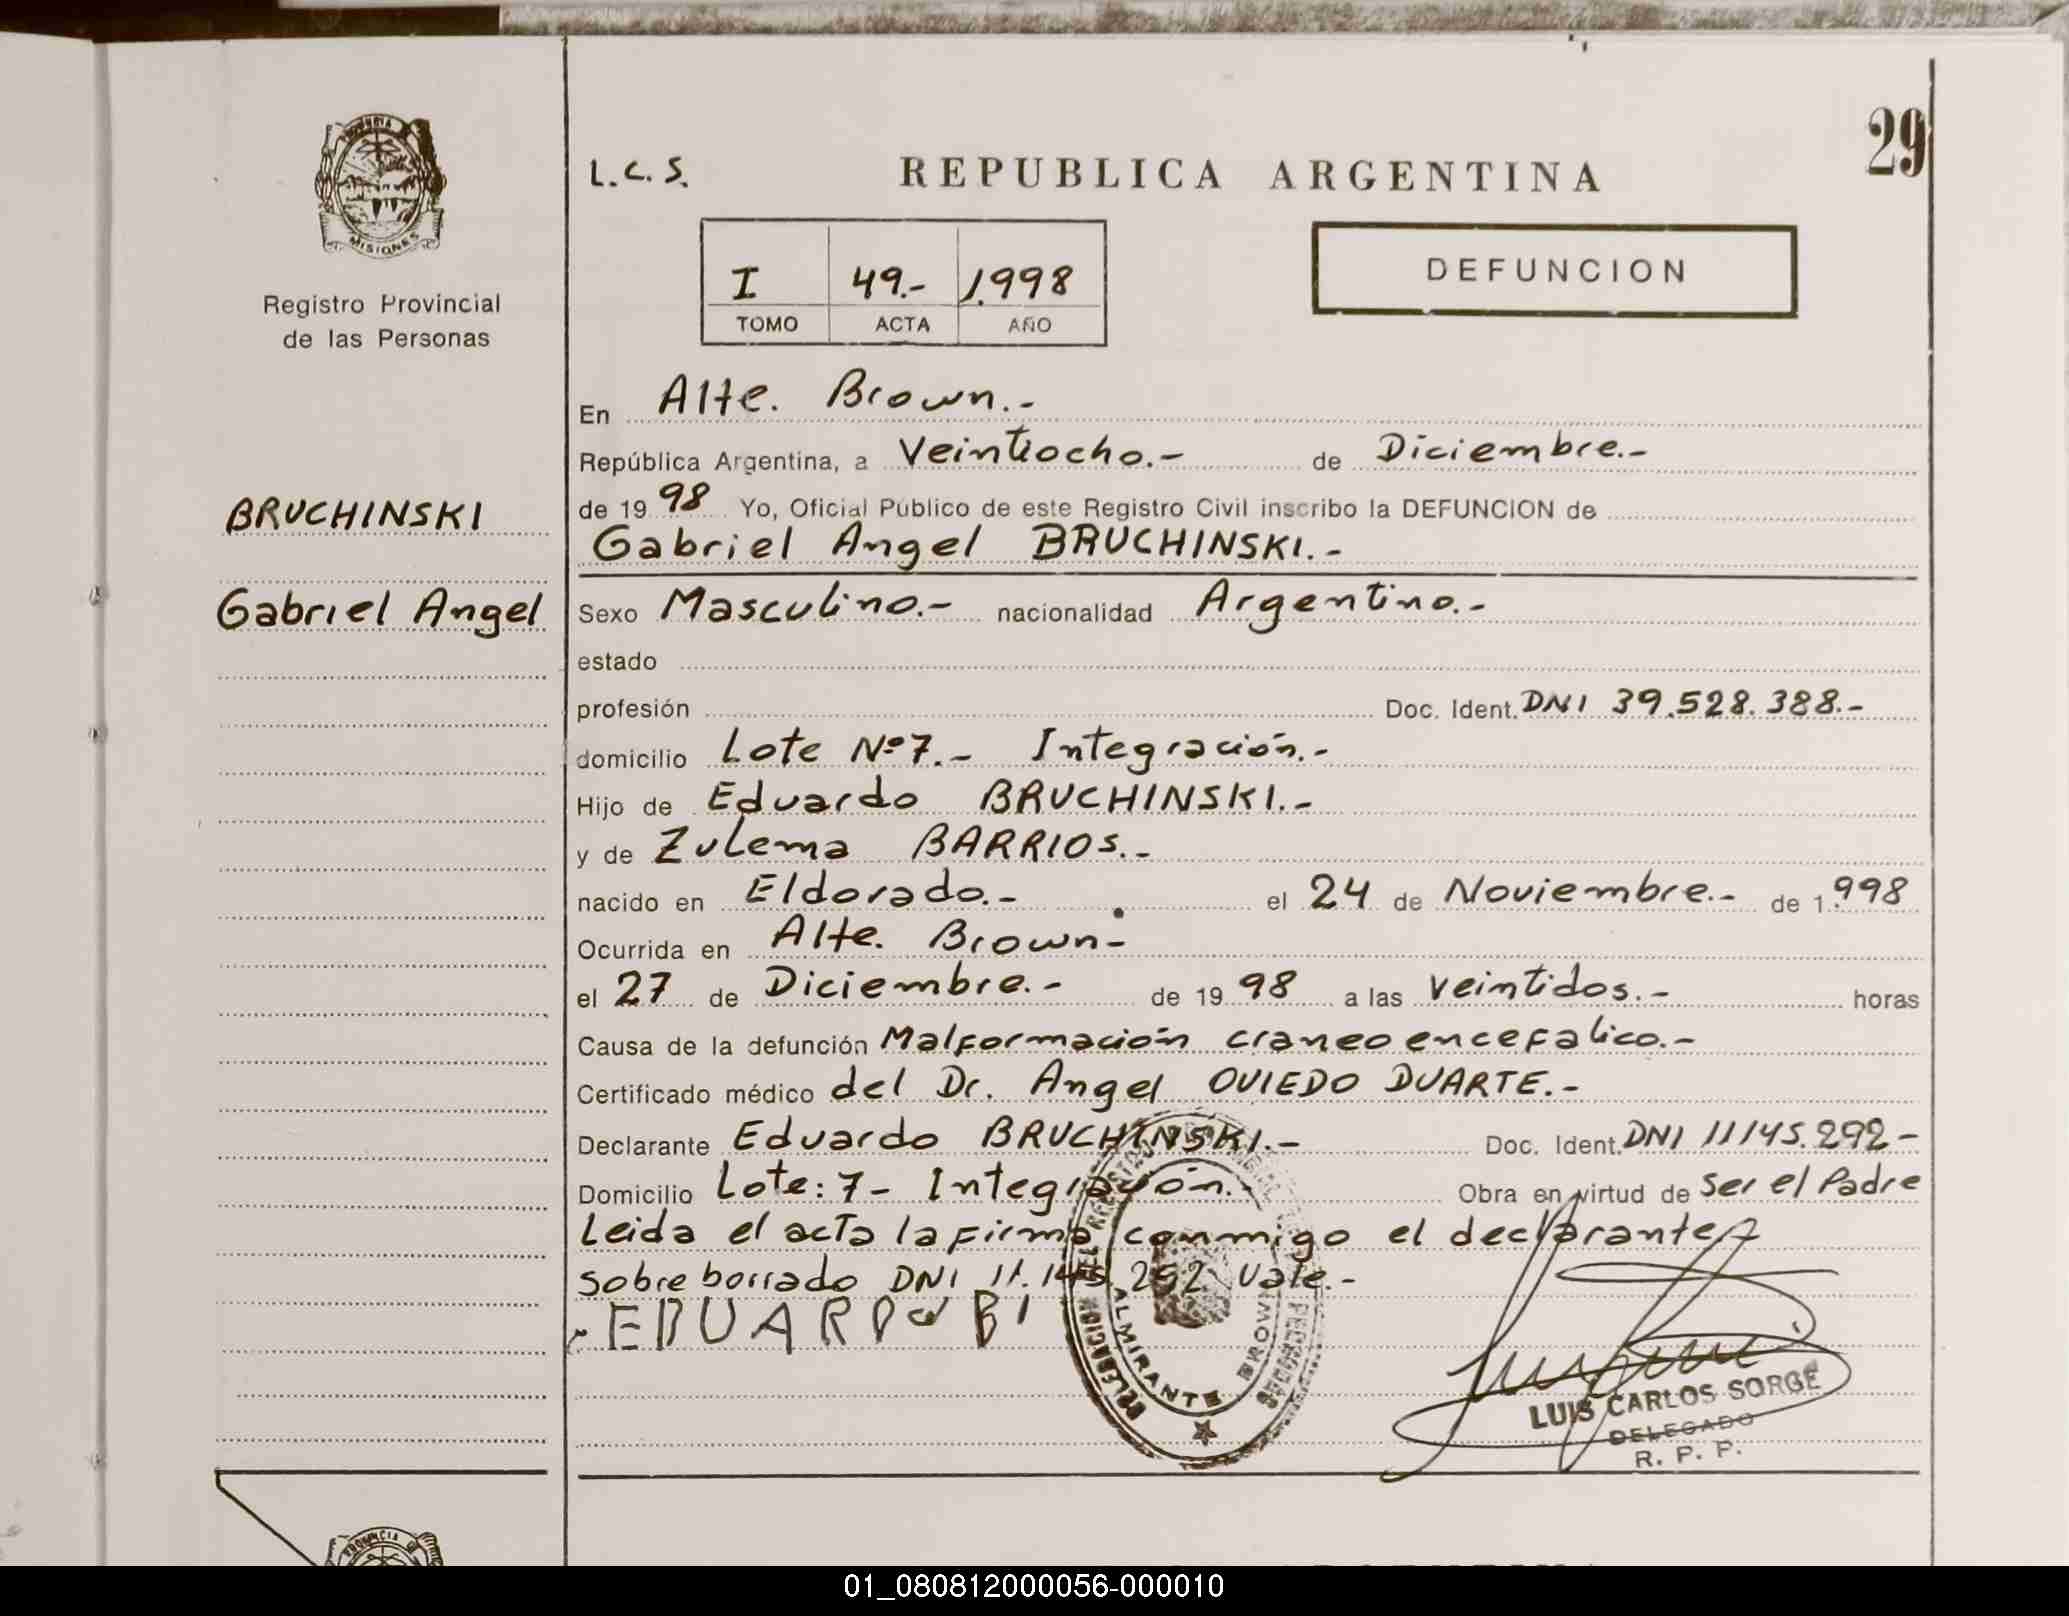 29
L.C.S. REPUBLICA ARGENTINA
PROVINCIA
MISIONES
Registro Provincial
de las Personas
I 49.- 1.998
TOMO ACTA AÑO
DEFUNCION
BRUCHINSKI
Gabriel Angel
En Alte. Brown.-
República Argentina, a Veintiocho.- de Diciembre.-
de 19 98 Yo, Oficial Público de este Registro Civil inscribo la DEFUNCION de
Gabriel Angel BRUCHINSKI.-
Sexo Masculino.- nacionalidad Argentino.-
estado
profesión Doc. Ident. DNI 39.528.388.-
domicilio Lote Nº 7.- Integración.-
Hijo de Eduardo BRUCHINSKI.-
y de Zulema BARRIOS.-
nacido en Eldorado.- el 24 de Noviembre.- de 1.998
Ocurrida en Alte. Brown-
el 27 de Diciembre.- de 19 98 a las veintidos.- horas
Causa de la defunción Malformación craneo encefalico.-
Certificado médico del Dr. Angel OVIEDO DUARTE.-
Declarante Eduardo BRUCHINSKI.- Doc. Ident. DNI 11145.292-
Domicilio Lote: 7- Integración.- Obra en virtud de ser el Padre
Leida el acta la firma conmigo el declarante
sobre borrado DNI 11.145.292 Vale.-
EDUARDO B
DELEGACION DEL REGISTRO PROVINCIAL DE LAS PERSONAS
ALMIRANTE BROWN
LUIS CARLOS SORGE
DELEGADO
R. P. P.
PROVINCIA
01_080812000056-000010